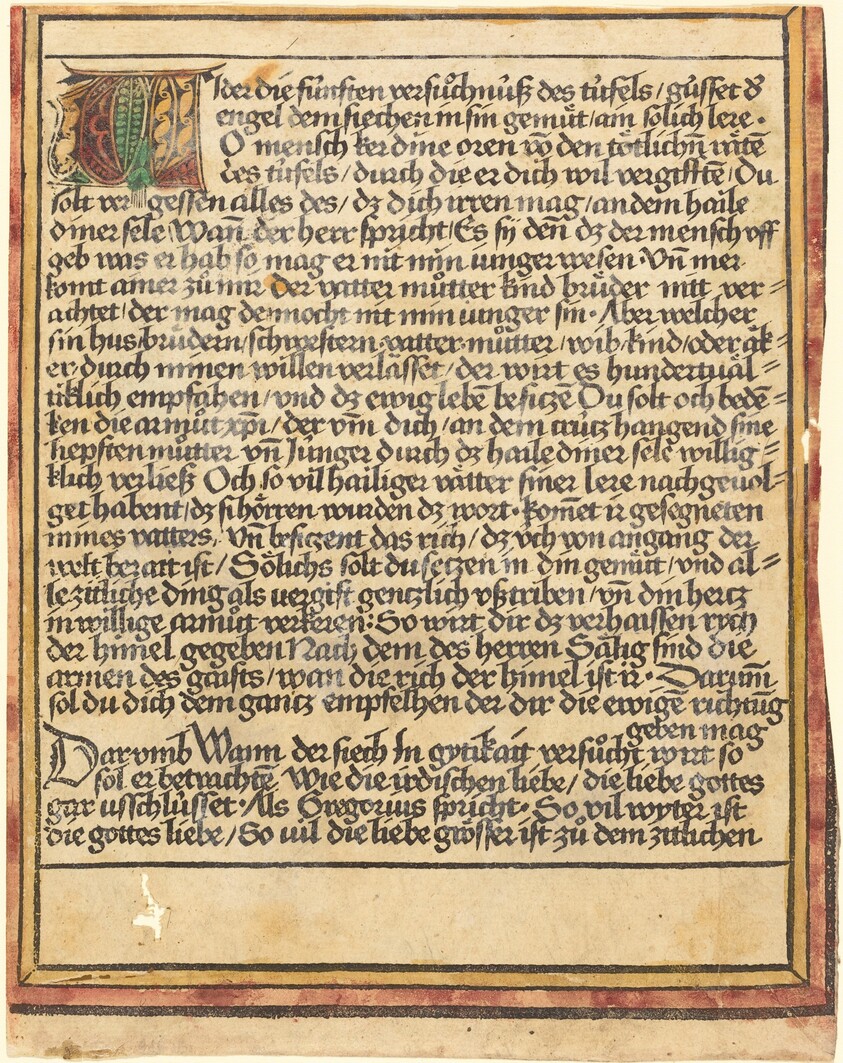 Wider die fünften versůchnůß des tüfels / güsset d͛
engel dem siechen in sin gemüt / ain sölich lere ·
O mensch ker dine oren vō den tötlichn̄ rätē
des tüfels / durch die er dich wil vergifftē / Du
solt ver gessen alles des / dz dich irren mag / an dem haile
diner sele Wan̄ der herr spricht / Es sÿ den̄ dz der mensch vff
geb was er hab so mag er nit min iunger wesen Vn̄ mer
komt ainer zů mir der vatter můtter kind brüder nitt ver =
achtet / der mag dennocht nit min iunger sin · Aber welcher
sin hus / brüdern / schwestern vatter můtter / wib / kind / oder äk =
er / durch minen willen verlässet / der wirt es hundertuäl =
tiklich empfahen / vnd dz ewig lebē besiczē Du solt och bedē =
ken die armůt xp̄i / der vm̄ dich / an dem crücz hangend sine
liepsten můtter vn̄ Junger durch dz haile diner sele willig =
klich verließ Och so vil hailiger vätter siner lere nachgeuol =
get habent / dz si hörren wurden dz wort · kom̄et ir gesegneten
mines vatters / vn̄ besiczent das rich / dz vch von angang der
welt berait ist / Sölichs solt du seczen in din gemüt / vnd al =
le zitliche ding als vergift genczlich vßtriben / vn̄ din hercz
in willige armůt verkeren : So wirt dir dz verhaissen rych
der himel gegeben Nach dem des herren Sälig sind die
armen des gaists / wan die rich der himel ist ir · Darum̄
sol du dich dem gancz empfelhen der dir die ewigē richtūg
geben mag
Dar vmb Wann der siech In gytikait versůcht wirt so
sol er betrachtē Wie die irdischen liebe / die liebe gottes
gar usschlüsset · Als Gregorius spricht · So vil wyter ist
die gottes liebe / So uil die liebe grösser ist zů dem zitlichen